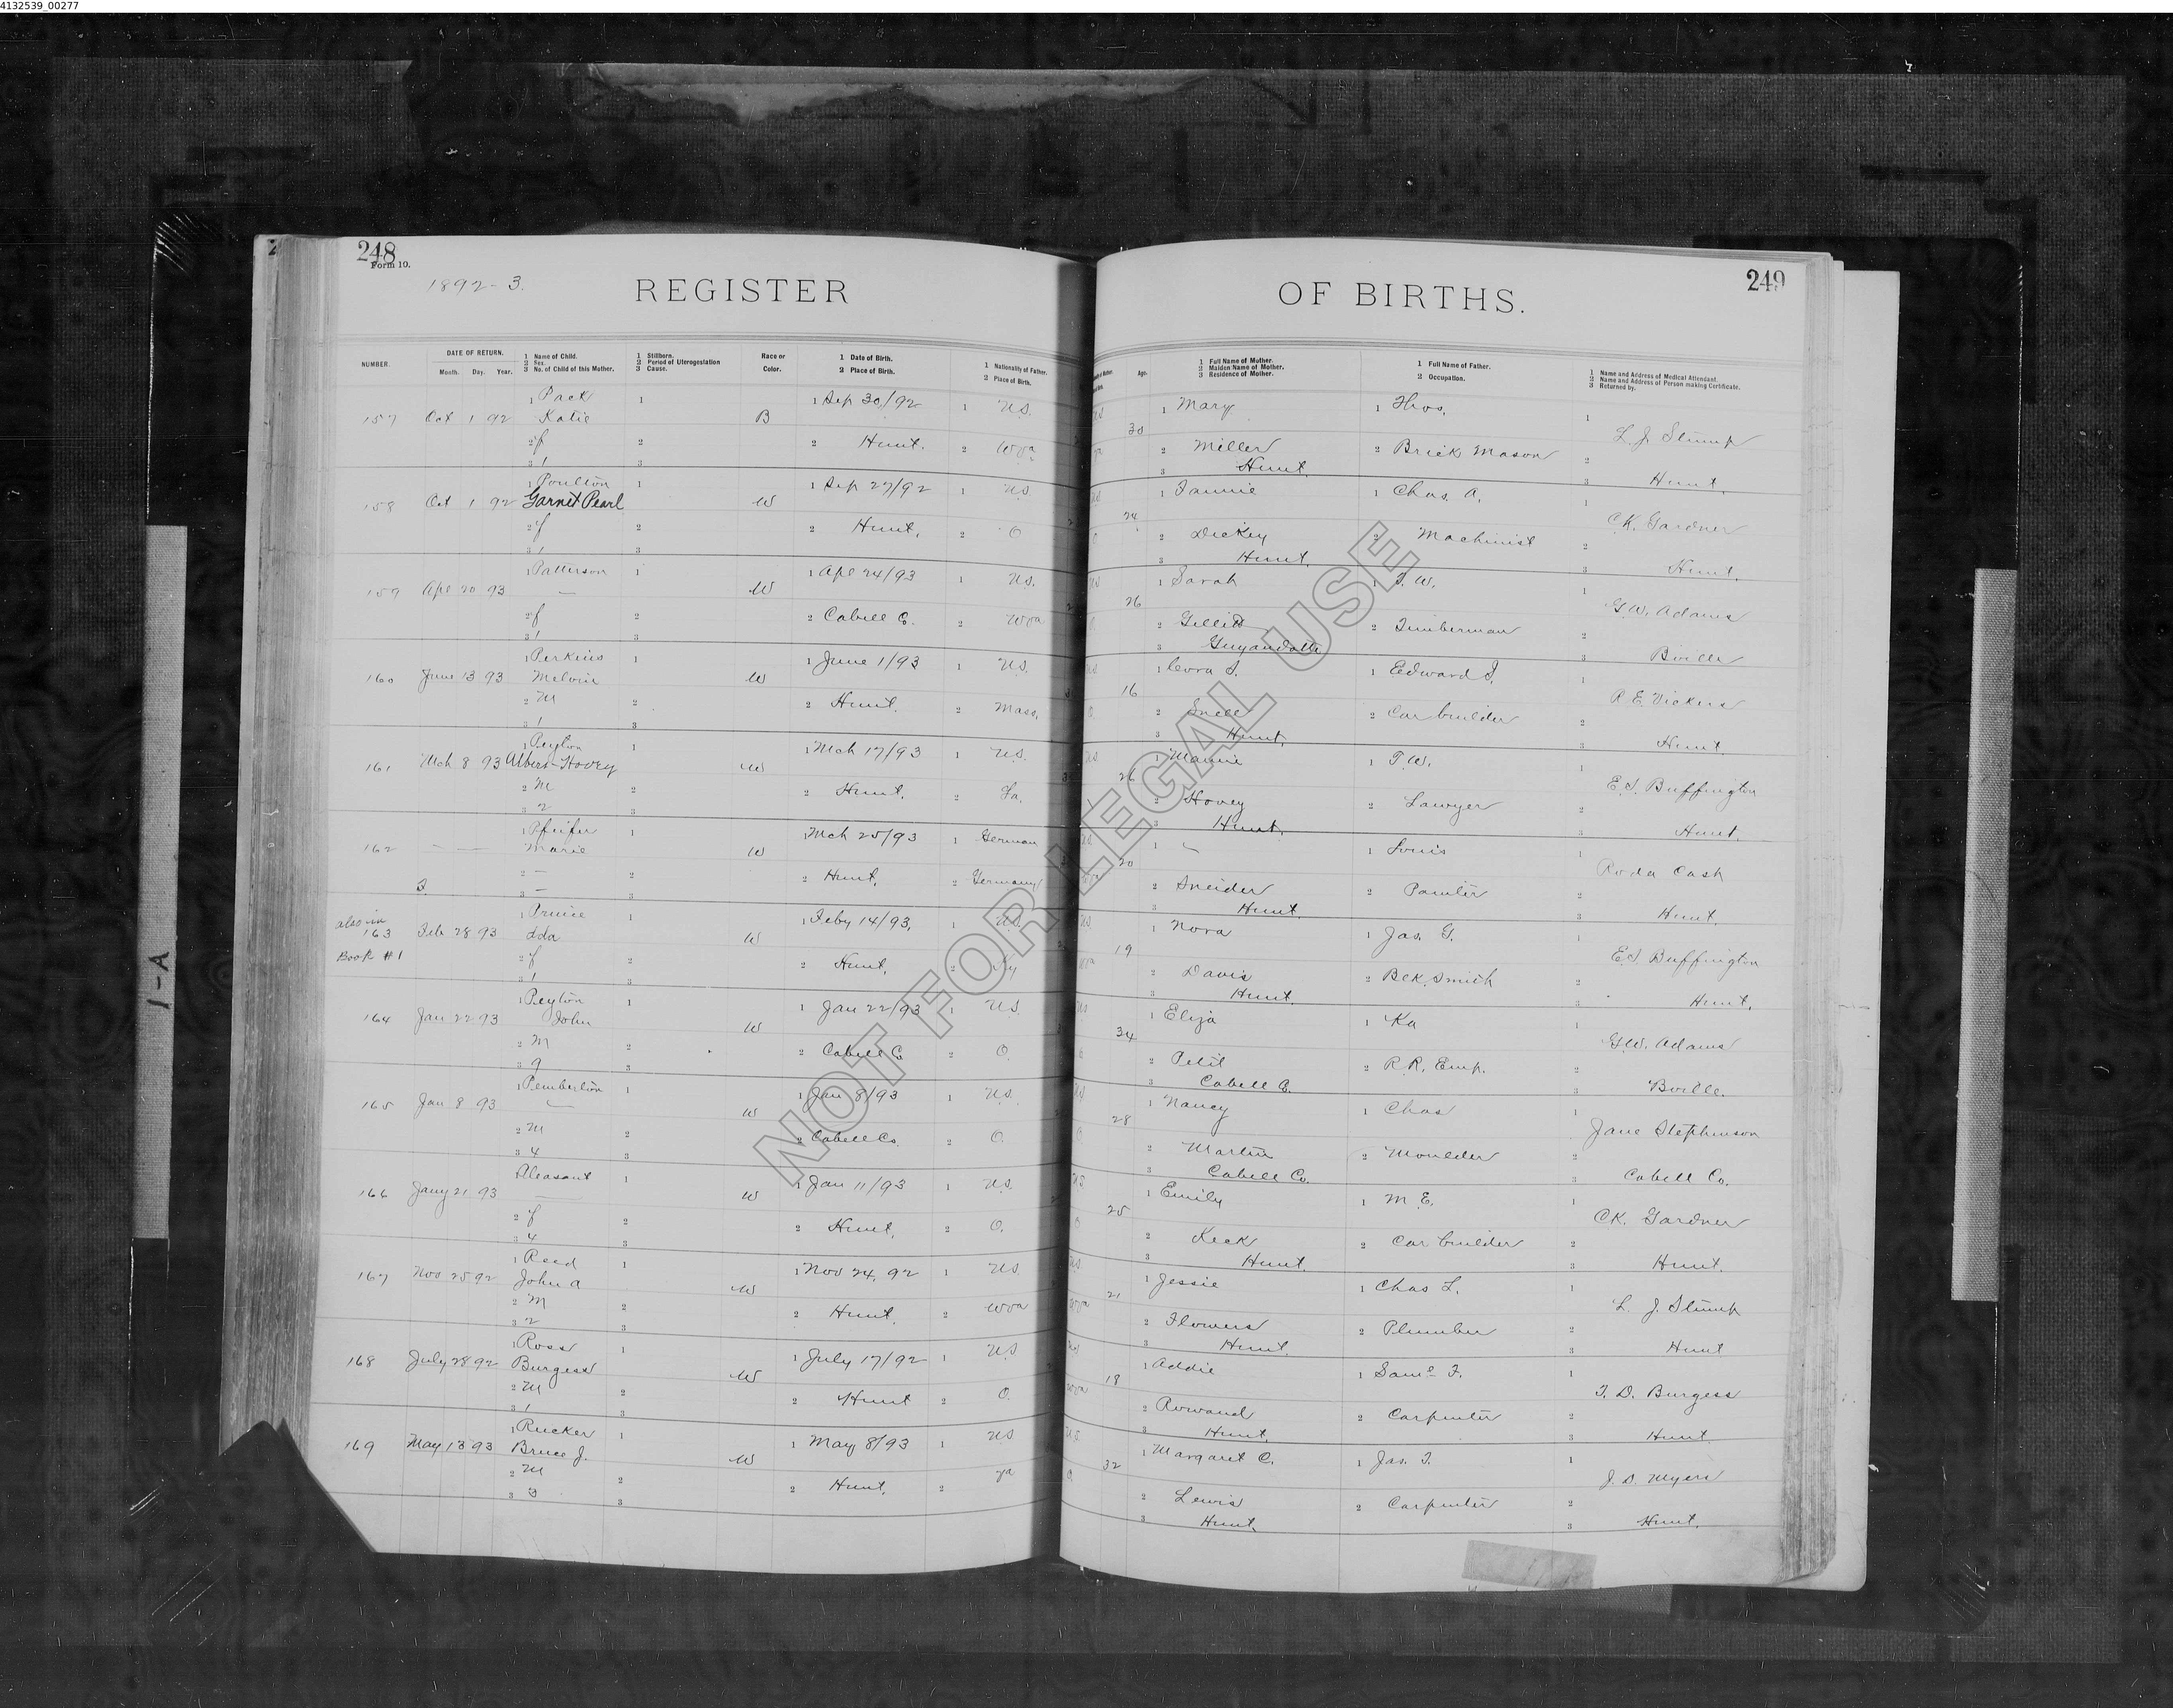 4132539_00277
248
Form 10.
1892-3.
REGISTER
OF BIRTHS.
249
NUMBER.
DATE OF RETURN.
Month. Day. Year.
1 Name of Child.
2 Sex.
3 No. of Child of this Mother.
1 Stillborn.
2 Period of Uterogestation
3 Cause.
Race or
Color.
1 Date of Birth.
2 Place of Birth.
1 Nationality of Father.
2 Place of Birth.
Age.
1 Full Name of Mother.
2 Maiden Name of Mother.
3 Residence of Mother.
1 Full Name of Father.
2 Occupation.
1 Name and Address of Medical Attendant.
2 Name and Address of Person making Certificate.
3 Returned by.
1 Pack 1 1 Sep 30/92 1 U.S. U.S. 1 Mary 1 Thos. 1
157 Oct 1 92 Katie B 30 L. J. Stump
2 f 2 2 Hunt. 2 Wva 2 Miller 2 Brick Mason 2
3 1 3 3 Hunt. 3 Hunt.
1 Poulton 1 1 Sep 27/92 1 U.S. U.S. 1 Fannie 1 Chas. A. 1
158 Oct 1 92 Garnet Pearl W 24 C.K. Gardner
2 f 2 2 Hunt. 2 O O 2 Dickey 2 Machinist 2
3 1 3 3 Hunt. 3 Hunt.
1 Patterson 1 1 Apl 24/93 1 U.S. U.S. 1 Sarah 1 T. W. 1
159 Apl 20 93 — W 26 G.W. Adams
2 f 2 2 Cabell C. 2 Wva 2 2 Timberman 2
3 1 3 3 Guyandotte 3 Bville
1 Perkins 1 1 June 1/93 1 U.S. U.S. 1 Cora S. 1 Edward S. 1
160 June 13 93 Melvin W 16 R. E. Vickers
2 M 2 2 Hunt. 2 Mass. O. 2 Snell 2 Car builder 2
3 1 3 3 Hunt. 3 Hunt.
1 Peyton 1 1 Mch 17/93 1 U.S. U.S. 1 Mamie 1 T.W. 1
161 Mch 8 93 Albert-Hovey W 26 E.S. Buffington
2 M 2 2 Hunt. 2 2 Hovey 2 Lawyer 2
3 2 3 3 Hunt. 3 Hunt.
1 Pfeifer 1 1 Mch 25/93 1 German U.S. 1 — 1 Louis 1
162 — — Marie W 20 Roda Cash
2 — 2 2 Hunt. 2 Germany Wva 2 Sneider 2 Painter 2
3. 3 — 3 3 Hunt. 3 Hunt.
also in 1 Prince 1 1 Feby 14/93. 1 U.S. U.S. 1 Nora 1 Jas. G. 1
163 Feb 28 93 Ada W 19 E.S. Buffington
Book #1 2 f 2 2 Hunt. 2 Ky Wva 2 Davis 2 Blk. Smith 2
3 1 3 3 Hunt. 3 Hunt.
1 Peyton 1 1 Jan 22/93 1 U.S. U.S. 1 Eliza 1 1
164 Jan 22 93 John W 34 G.W. Adams
2 M 2 2 Cabell C. 2 O. 2 Petit 2 R.R. Emp. 2
3 9 3 3 Cabell C. 3 Bville.
1 Pemberton 1 1 Jan 8/93 1 U.S. U.S. 1 Nancy 1 Chas 1
165 Jan 8 93 — W 28 Jane Stephenson
2 M 2 2 Cabell Co. 2 O. O. 2 Martin 2 Moulder 2
3 4 3 3 Cabell Co. 3 Cabell Co.
Pleasant 1 1 Jan 11/93 1 U.S. U.S. 1 Emily 1 M. E. 1
166 Jany 21 93 — W 25 C.K. Gardner
2 f 2 2 Hunt. 2 O. O 2 Keck 2 Car builder 2
3 4 3 3 Hunt. 3 Hunt.
1 Reed 1 1 Nov 24, 92 1 U.S. U.S. 1 Jessie 1 Chas L. 1
167 Nov 25 92 John A W 21 L. J. Stump
2 M 2 2 Hunt. 2 Wva Wva 2 Flowers 2 Plumber 2
3 2 3 3 Hunt. 3 Hunt
1 Ross 1 1 July 17/92 1 U.S U.S 1 Addie 1 Saml F. 1
168 July 28 92 Burgess W 18 T. D. Burgess
2 M 2 2 Hunt 2 O. Wva 2 Rowand 2 Carpenter 2
3 1 3 3 Hunt. 3 Hunt
1 Rucker 1 1 May 8/93 1 U.S U.S 1 Margaret C. 1 Jas. T. 1
169 May 13 93 Bruce J. W 32 J. D. Myers
2 M 2 2 Hunt. 2 Va O. 2 Lewis 2 Carpenter 2
3 3 3 3 Hunt. 3 Hunt.
NOT FOR LEGAL USE
1-A